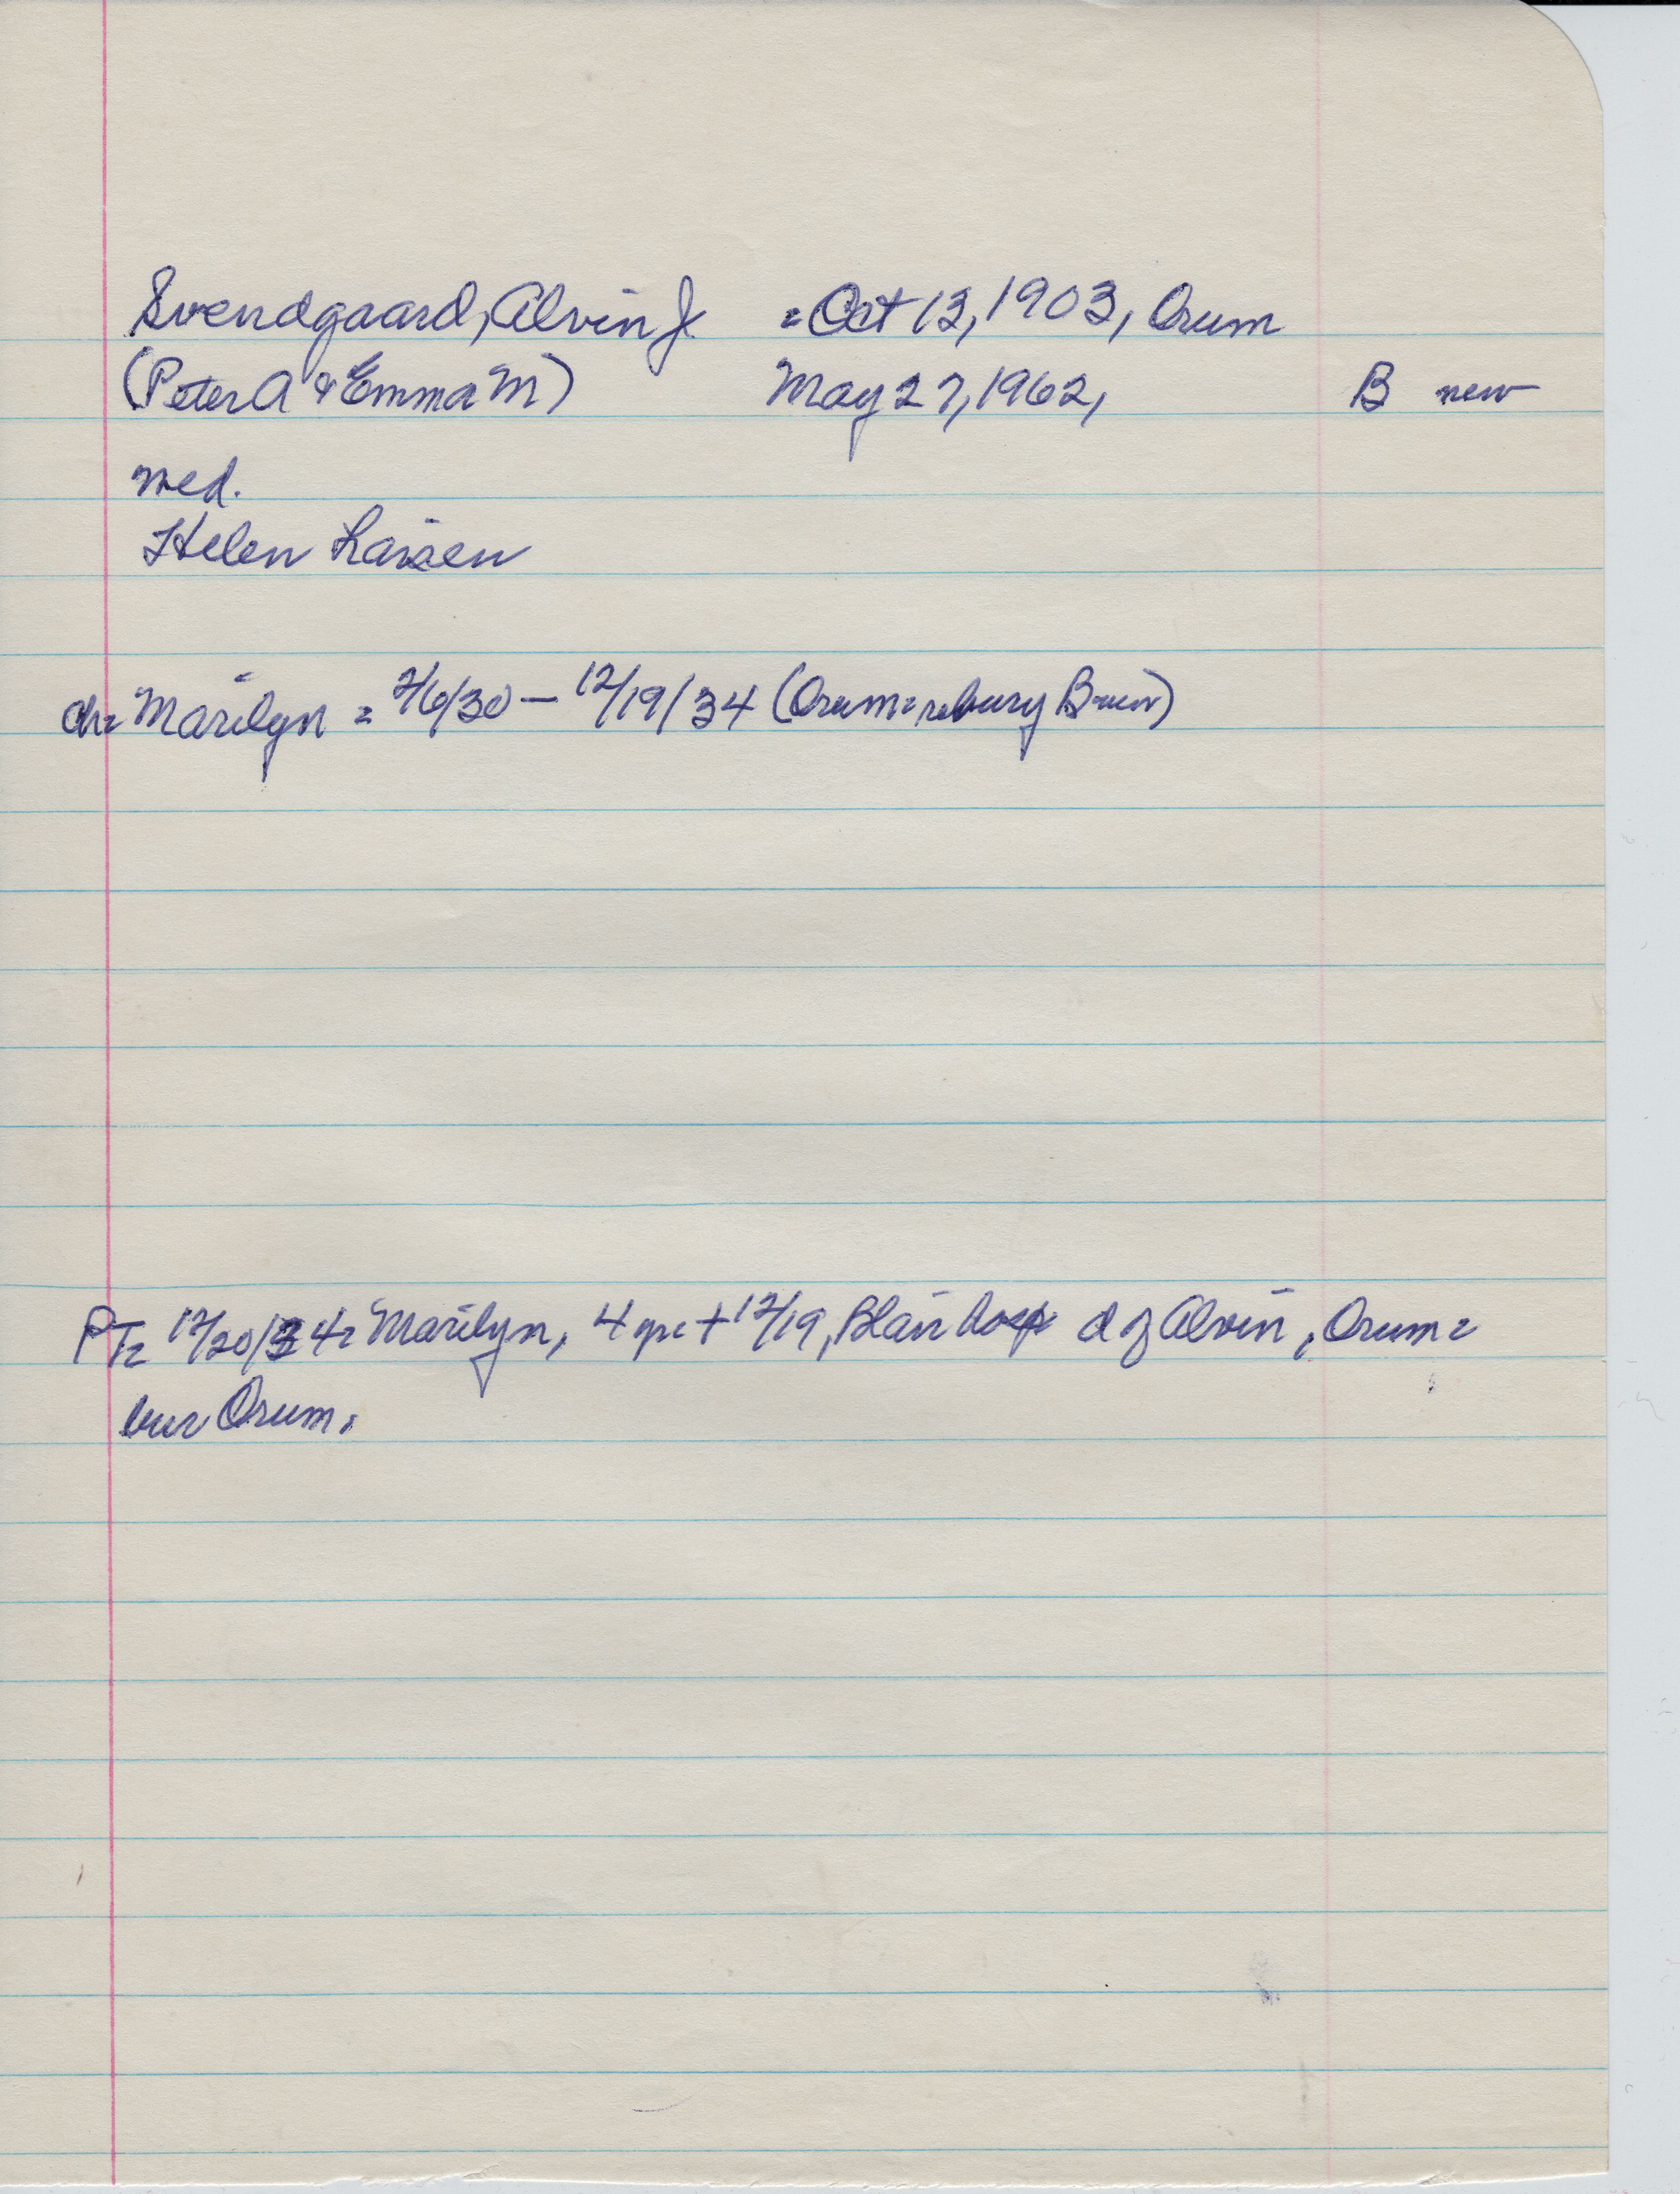 Svendgaard, Alvin J. = Oct 13, 1903, Orum
(Peter A & Emma M) May 27, 1962, B new
med.
Helen Larsen
ch= Marilyn = 2/6/30 - 12/19/34 (Orum = rebury B new)
PT= 12/20/34= Marilyn, 4 yr + 12/19, Blair hosp d of Alvin, Orum =
bur Orum.